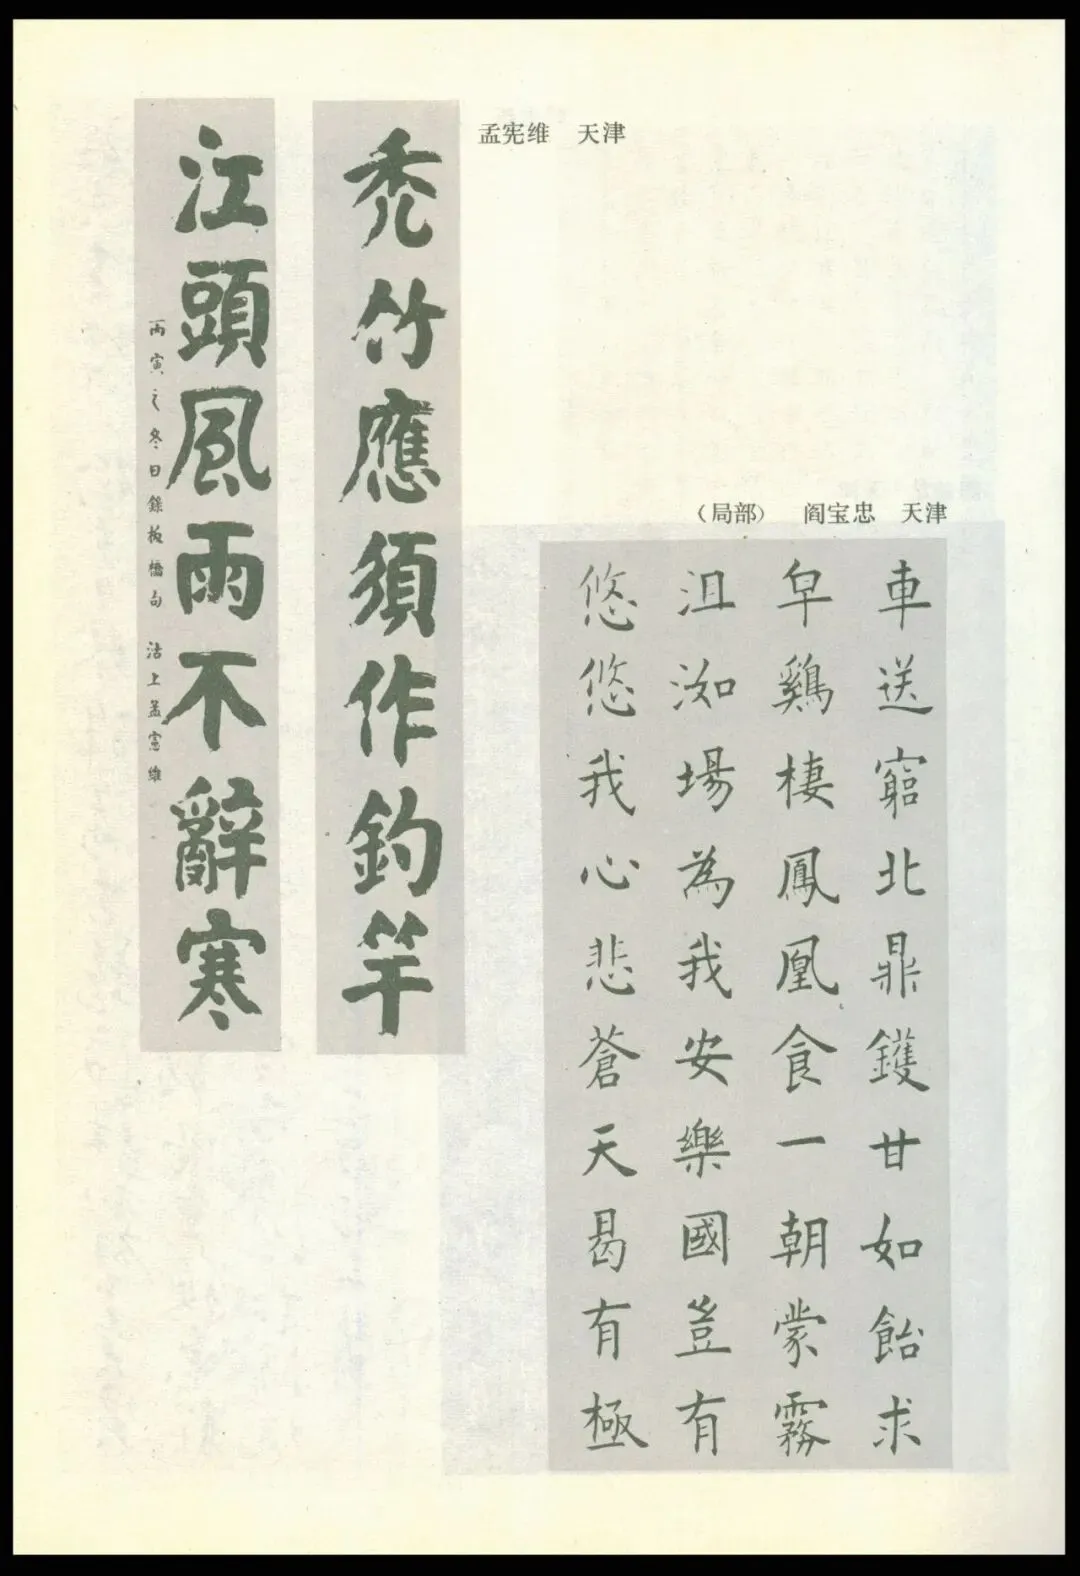 孟宪维 天津
秃竹應須作釣竿
江頭風雨不辭寒
丙寅之冬日錄板橋句 沽上孟憲維
（局部） 阎宝忠 天津
車送窮北鼎鑊甘如飴求
皁鷄棲鳳凰食一朝蒙霧
沮洳場為我安樂國豈有
悠悠我心悲蒼天曷有極